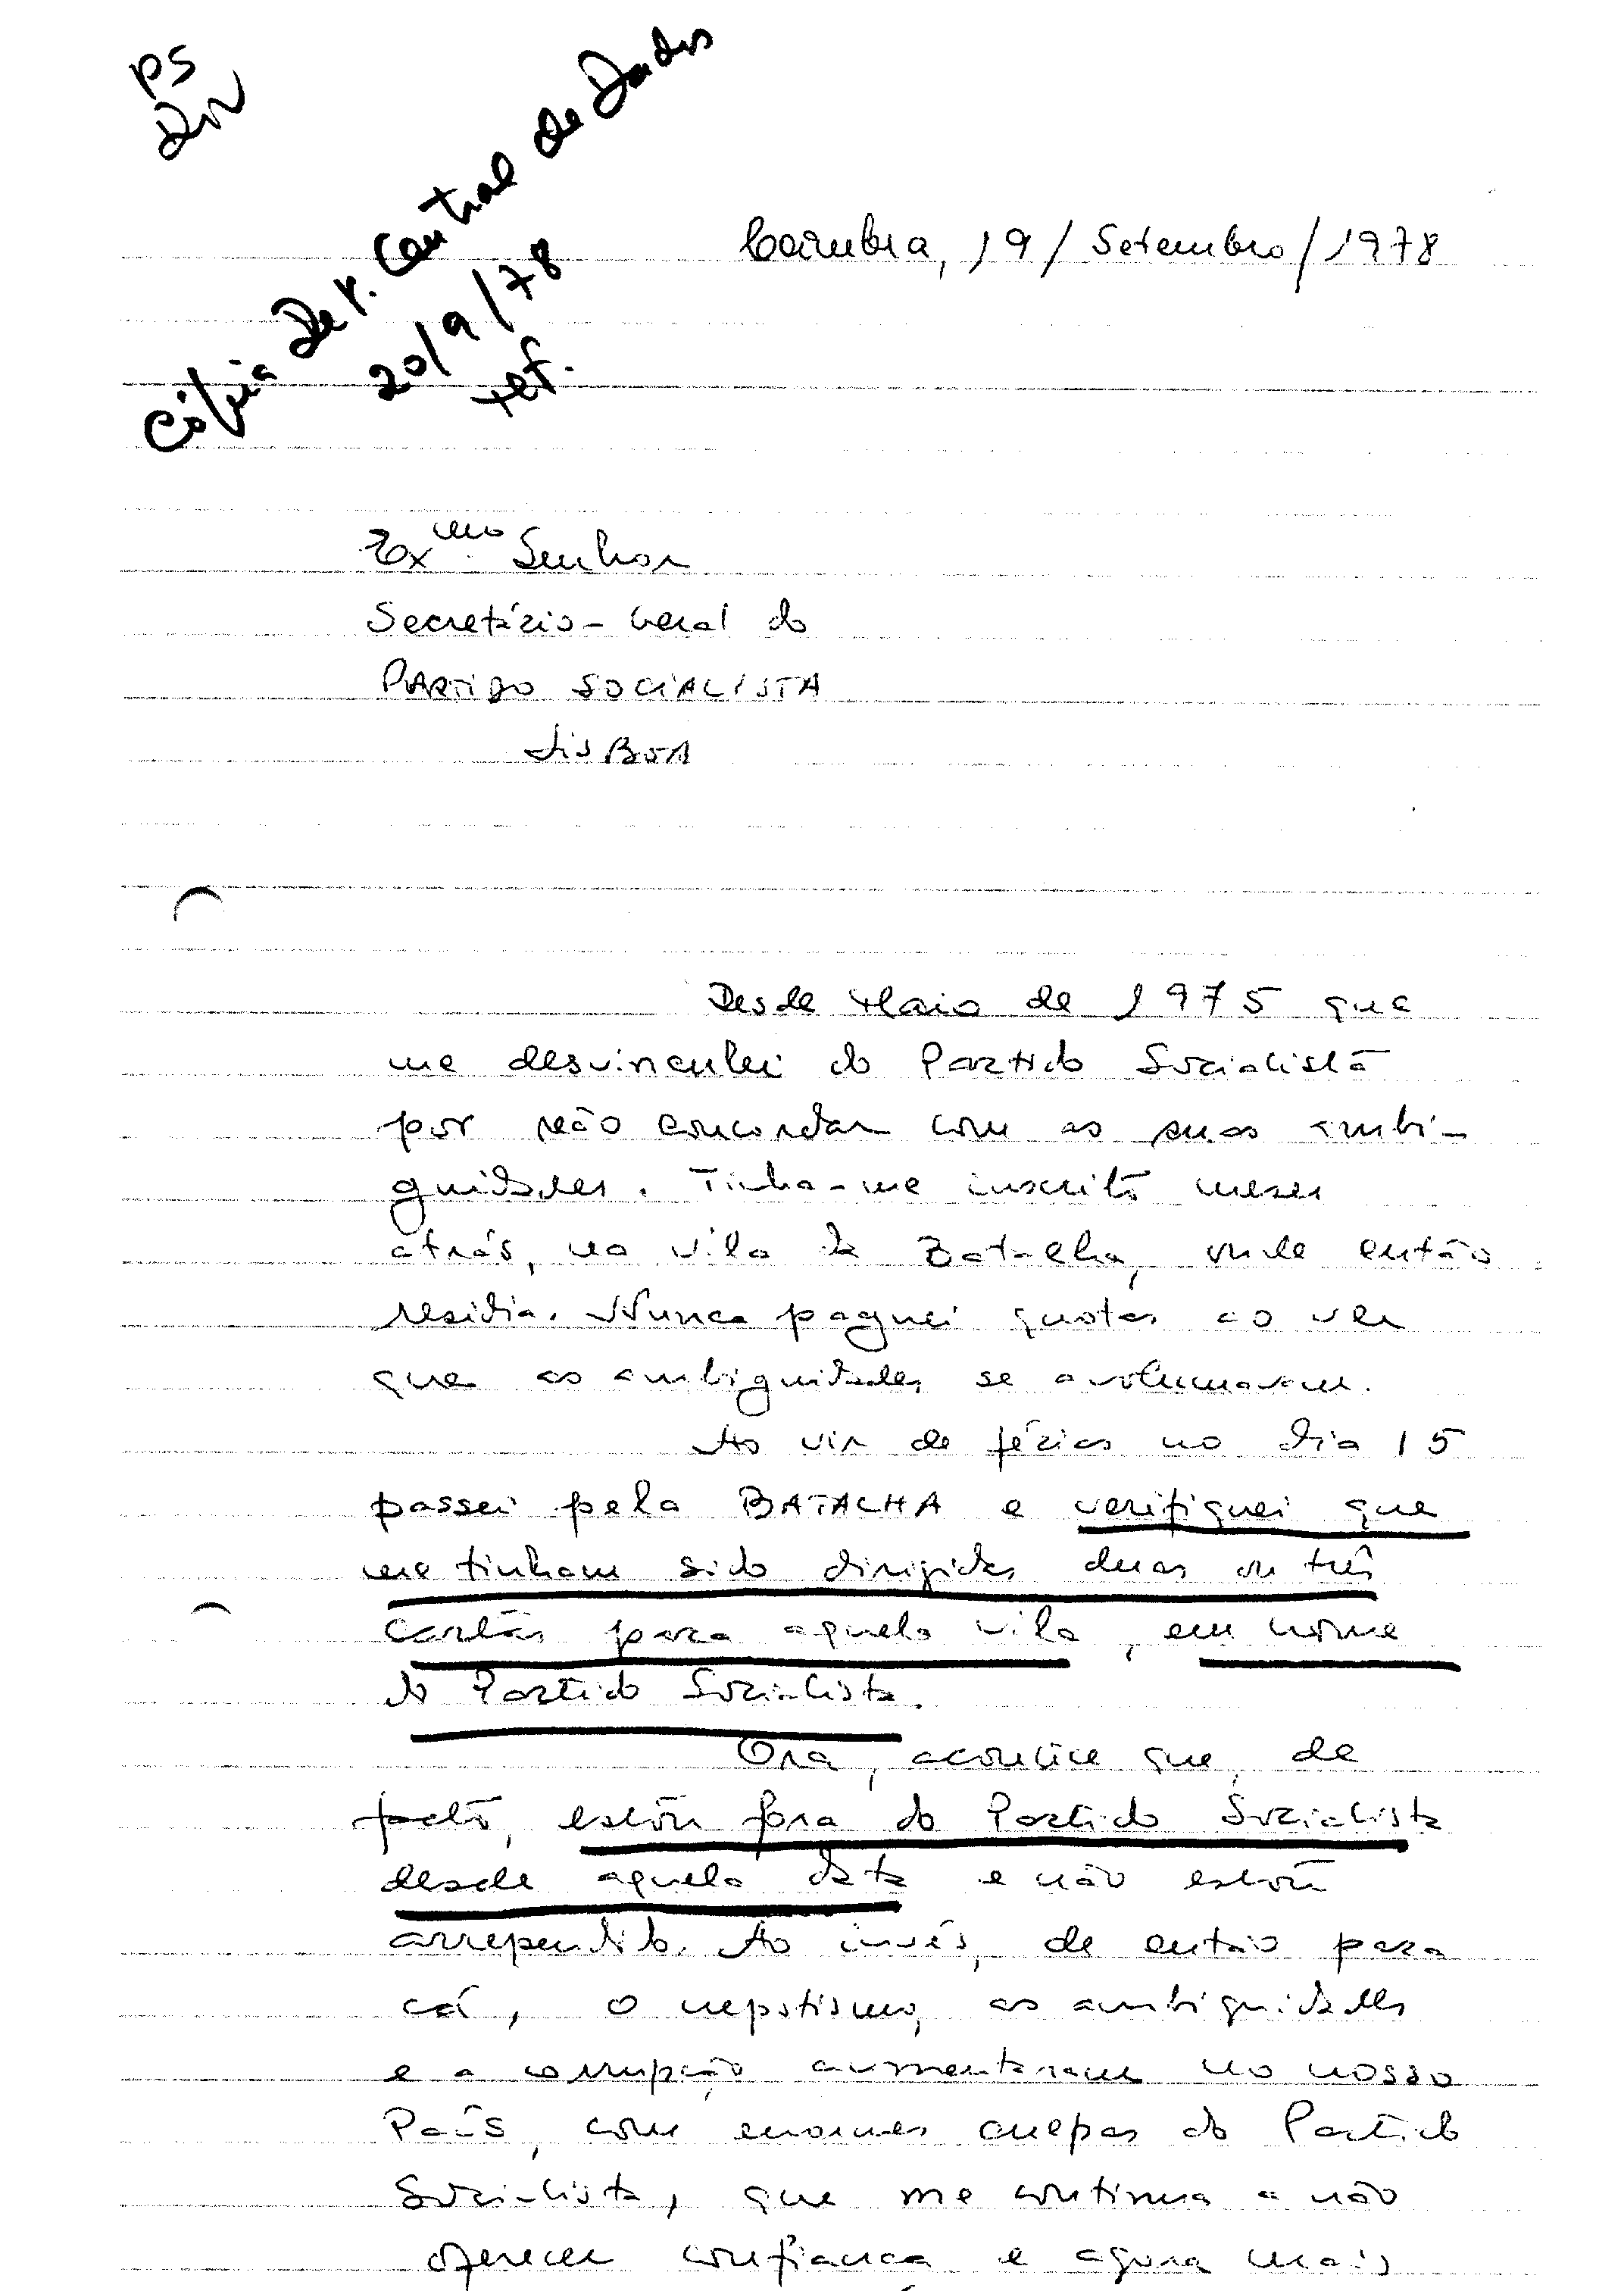 PS
Cópia Dep. Central de Dados
20/9/78
Coimbra, 19/Setembro/1978
Exmo Senhor
Secretário-Geral do
PARTIDO SOCIALISTA
LISBOA
Desde Maio de 1975 que
me desvinculei do Partido Socialista
por não concordar com as suas ambi-
guidades. Tinha-me inscrito meses
atrás, na vila da Batalha, onde então
residia. Nunca paguei quotas ao ver
que as ambiguidades se avolumavam.
Ao vir de férias no dia 15
passei pela BATALHA e verifiquei que
me tinham sido dirigidas duas ou três
cartas para aquela vila, em nome
do Partido Socialista.
Ora, acontece que, de
facto, estou fora do Partido Socialista
desde aquela data e não estou
arrependido. Ao invés, de então para
cá, o nepotismo, as ambiguidades
e a corrupção aumentaram no nosso
País, com enormes culpas do Partido
Socialista, que me continua a não
oferecer confiança e agora mais